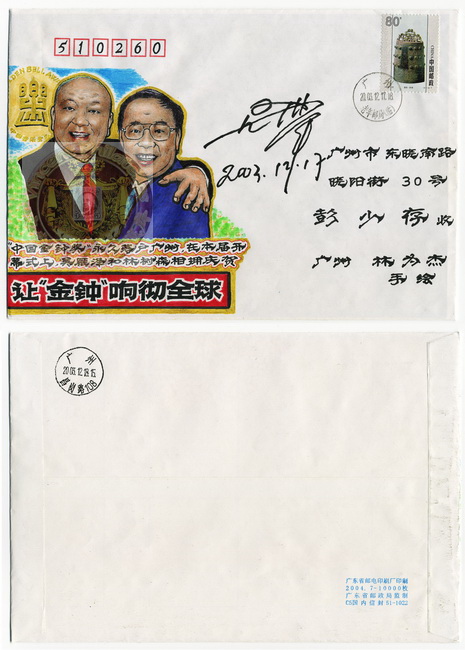 510260
GOLDEN BELL AWARD
80分
中国邮政
广州
广州市东晓南路
晓阳街30号
彭少存收
广州 林为杰
手绘
2003.12.17
"中国金钟奖"永久落户广州,在本届开
幕式上,吴雁泽和林树森相拥庆贺
让"金钟"响彻全球
广州
广东省邮电印刷厂印制
2004.7-10000枚
广东省邮政局监制
C5国内信封51-1022